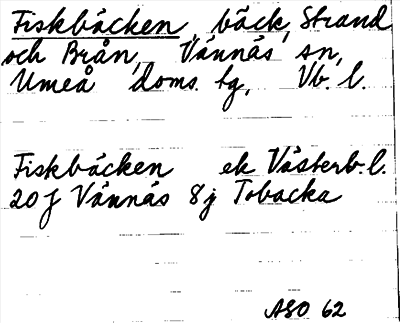 Fiskbäcken, bäck, Strand
och Brån, Vännäs sn,
Umeå doms. tg, Vb. l.
Fiskbäcken ek Västerb. l.
20 J Vännäs 8 j Tobacka
ASO 62